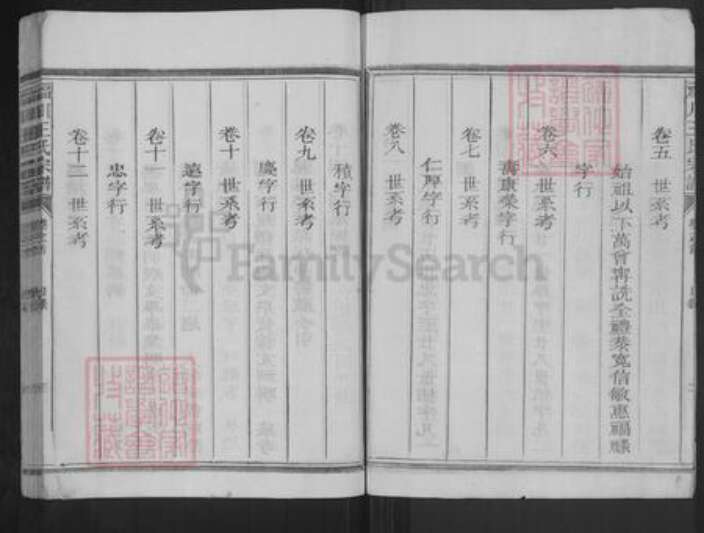 卷五 世系考
始祖以下萬會
全禮恭寬信敏惠
字行
卷六 世系考
壽康榮字行
卷七 世系考
仁厚字行
卷八 世系考
積字行
卷九 世系考
慶字行
卷十 世系考
遠字行
卷十一 世系考
忠字行
卷十二 世系考
川王氏宗譜
FamilySearch